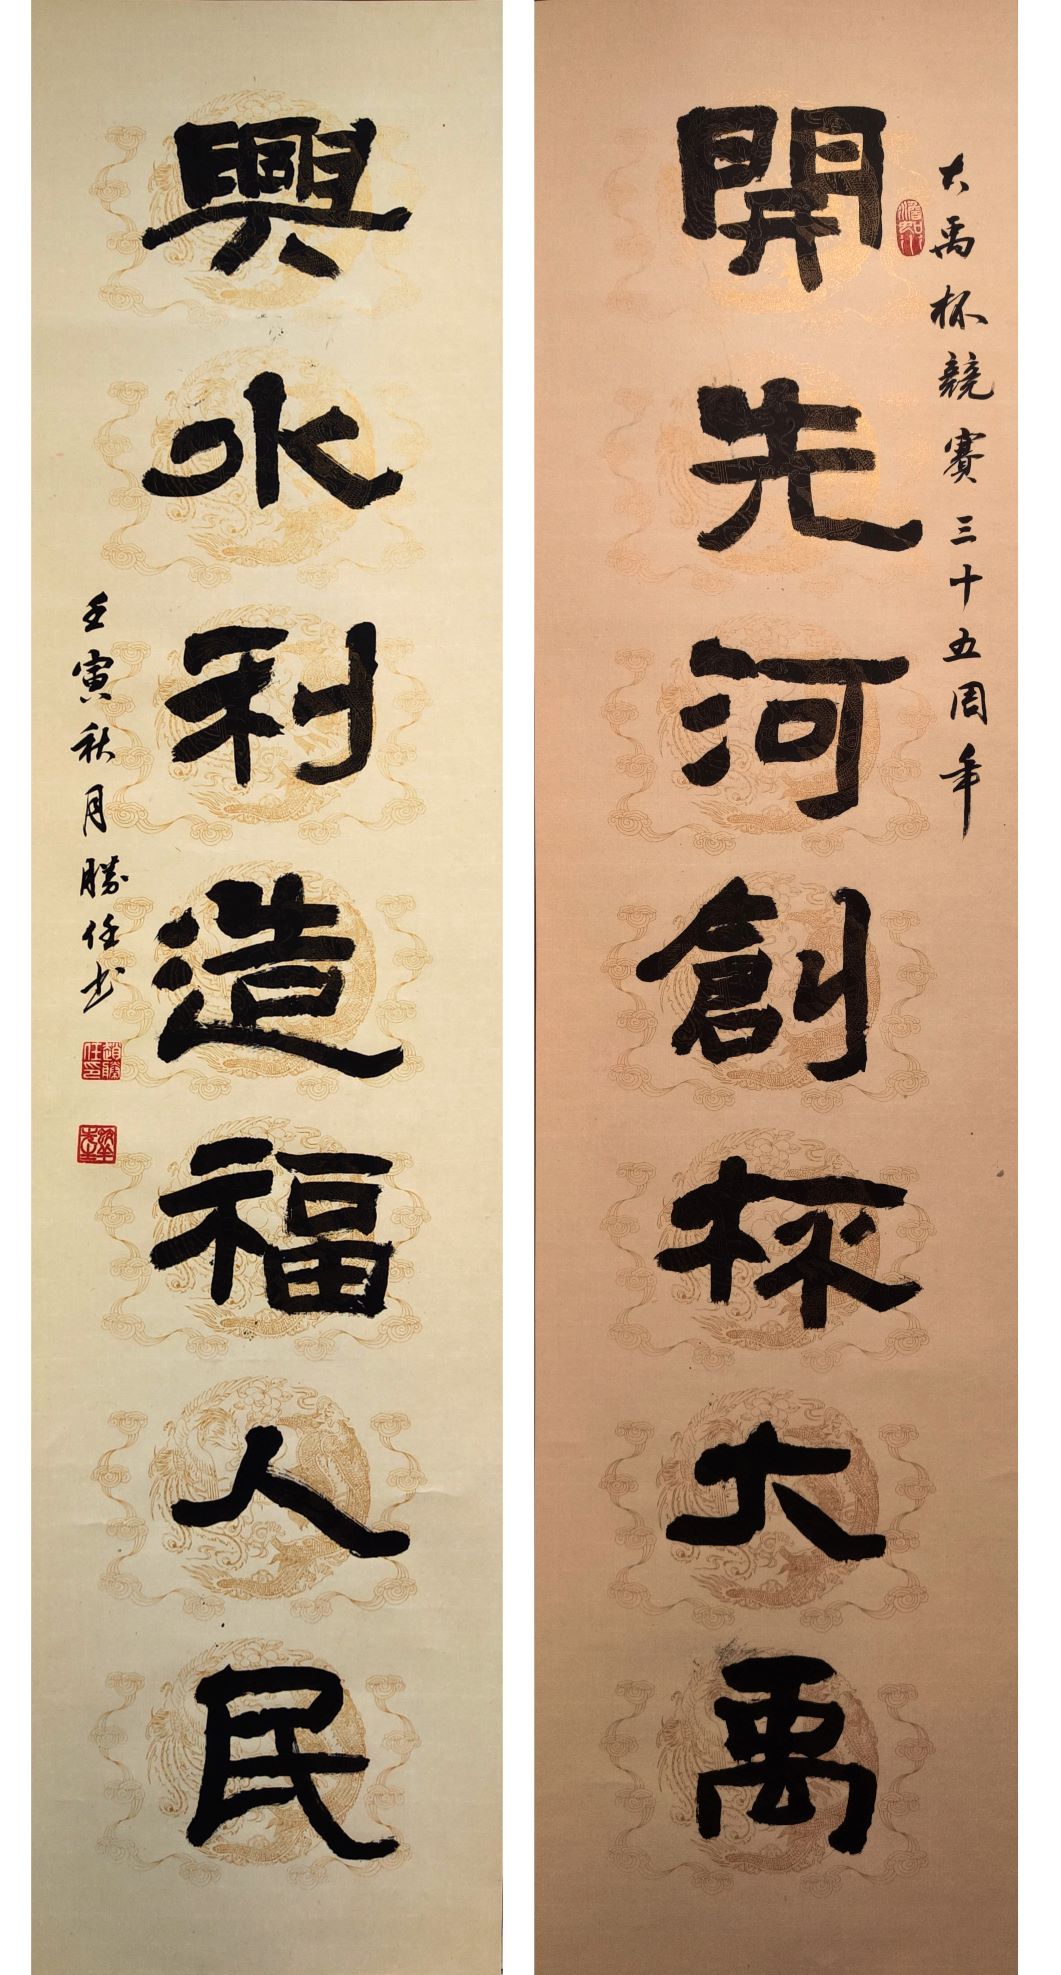 大禹杯競賽三十五周年
開先河創杯大禹
興水利造福人民
壬寅秋月勝任书
趙勝任印